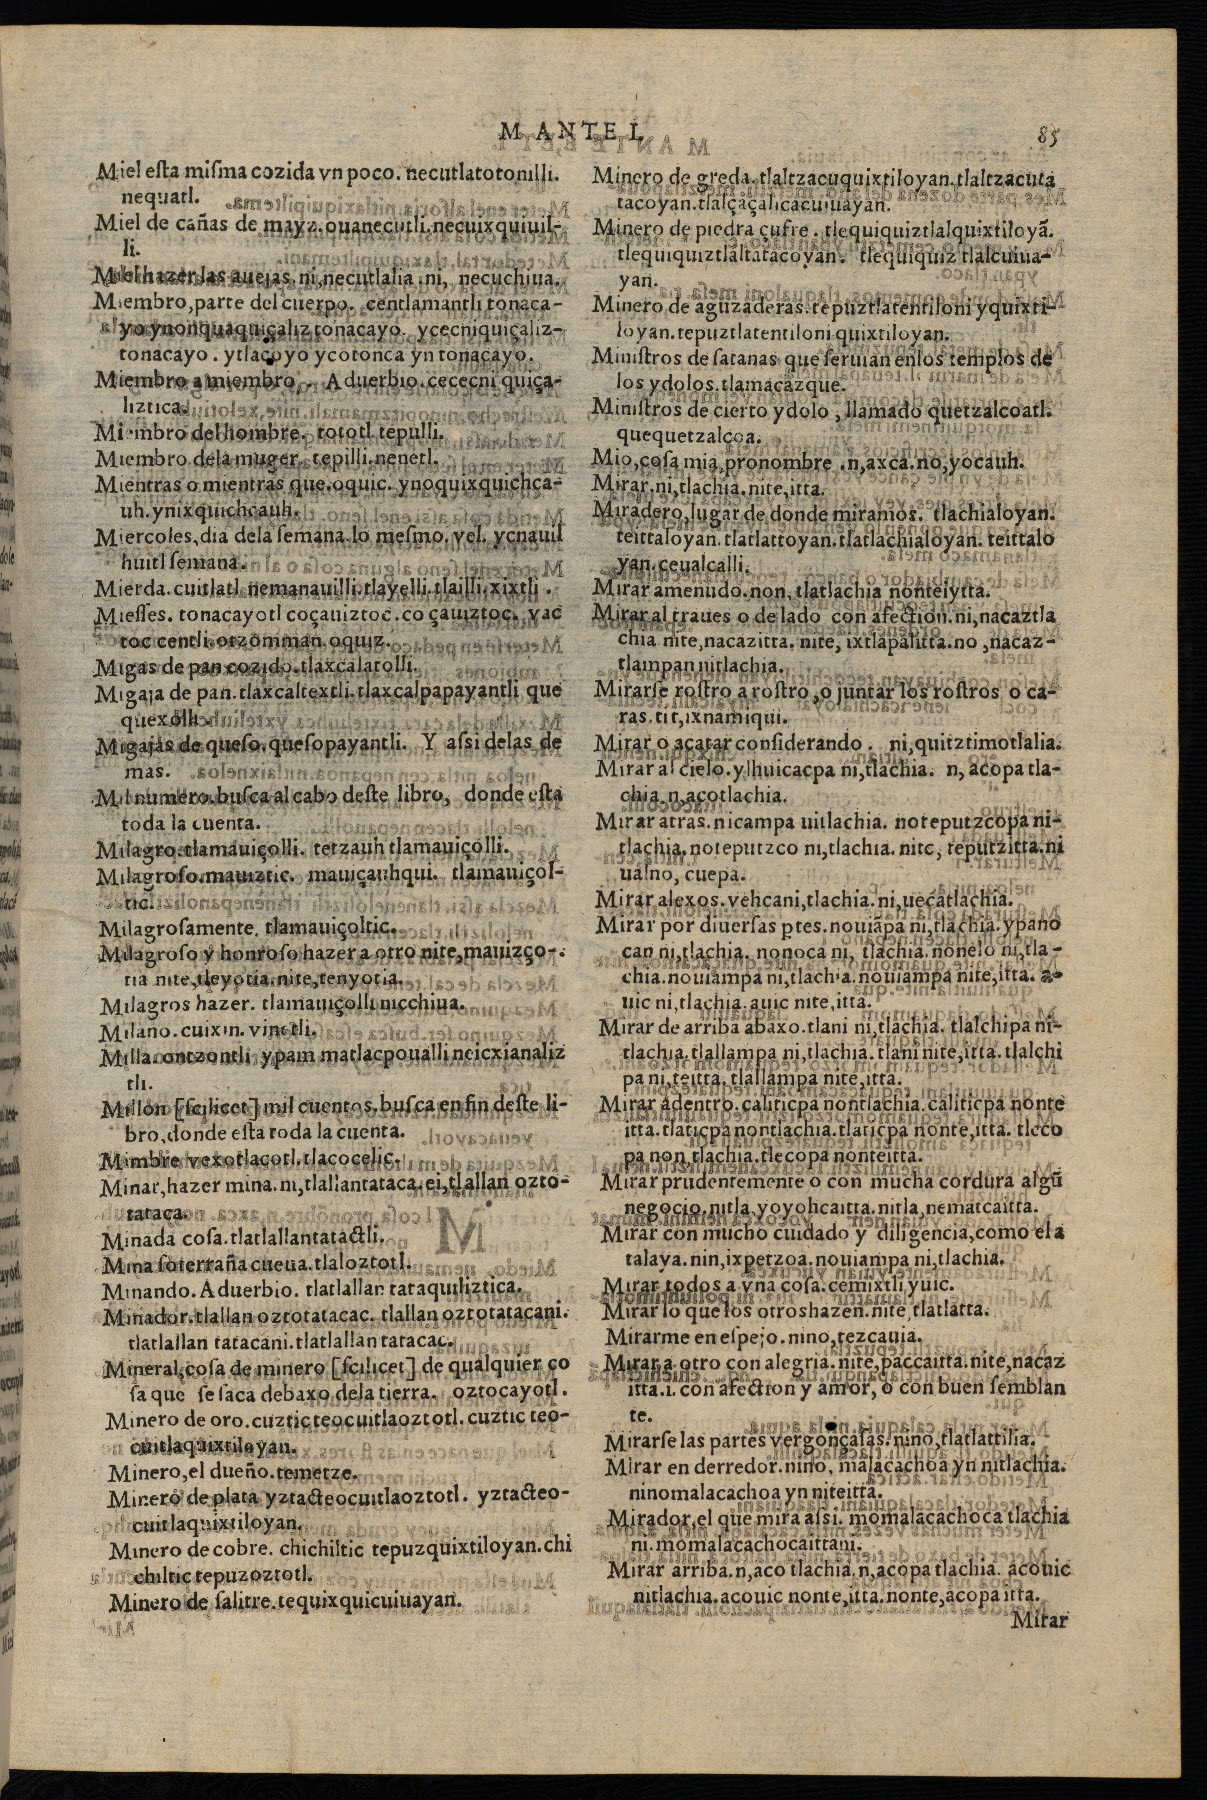 M ANTE I.
85
Miel esta misma cozida vn poco. necutlatotonilli.
nequatl.
Miel de cañas de mayz. ouanecutli. necuixquiuil-
li.
Miel hazer las auejas. ni, necutlalia. ni, necuchiua.
Miembro, parte del cuerpo. centlamantli tonaca-
yo ynonquaquiçaliz tonacayo. ycecniquiçaliz-
tonacayo. ytlacoyo ycotonca yn tonacayo.
Miembro a miembro. Aduerbio. cececni quiça-
liztica.
Miembro del hombre. tototl. tepulli.
Miembro dela muger. tepilli. nenetl.
Mientras o mientras que. oquic. ynoquixquichca-
uh. ynixquichcauh.
Miercoles, dia dela semana. lo mesmo. vel. ycnauil
huitl semana.
Mierda. cuitlatl. nemanauilli. tlayelli. tlailli. xixtli.
Miesses. tonacayotl coçauiztoc. coçauiztoc. vac
toc centli. otzomman. oquiz.
Migas de pan cozido. tlaxcalatolli.
Migaja de pan. tlaxcaltextli. tlaxcalpapayantli que
quexolli.
Migajas de queso. quesopayantli. Y assi delas de
mas.
Mil numero. busca al cabo deste libro, donde esta
toda la cuenta.
Milagro. tlamauiçolli. tetzauhtlamauiçolli.
Milagroso. mauiztic. mauiçauhqui. tlamauiçol-
tic.
Milagrosamente. tlamauiçoltic.
Milagroso y honroso hazer a otro nite, mauizço-
tia nite, tleyotia. nite, tenyotia.
Milagros hazer. tlamauiçolli nicchiua.
Milano. cuixin. vinctli.
Milla. ontzontli ypam matlacpoualli neicxianaliz
tli.
Millon [scilicet] mil cuentos. busca en fin deste li-
bro, donde esta toda la cuenta.
Mimbre vexotlacotl. tlacocelic.
Minar, hazer mina. ni, tlallantataca. ei, tlallan ozto-
tataca.
Minada cosa. tlatlallantatactli.
Mina soterraña cueua. tlaloztotl.
Minando. Aduerbio. tlatlallan tataquiliztica.
Minador. tlallan oztotatacac. tlallan oztotatacani.
tlatlallan tatacani. tlatlallan tatacac.
Mineral, cosa de minero [scilicet] de qualquier co
sa que se saca debaxo dela tierra. oztocayotl.
Minero de oro. cuztic teocuitlaoztotl. cuztic teo-
cuitlaquixtiloyan.
Minero, el dueño. temetze.
Minero de plata yztacteocuitlaoztotl. yztacteo-
cuitlaquixtiloyan.
Minero de cobre. chichiltic tepuzquixtiloyan. chi
chiltic tepuzoztotl.
Minero de salitre. tequixquicuiuayan.
Minero de greda. tlaltzacuquixtiloyan. tlaltzacuta
tacoyan. tlalçaçalicacuiuayan.
Minero de piedra çufre. tlequiquiztlalquixtiloyã.
tlequiquiztlaltatacoyan. tlequiquiztlalcuiua-
yan.
Minero de aguzaderas. tepuztlatentiloni yquixti-
loyan. tepuztlatentiloni quixtiloyan.
Ministros de satanas que seruian enlos templos de
los ydolos. tlamacazque.
Ministros de cierto ydolo, llamado quetzalcoatl.
quequetzalcoa.
Mio, cosa mia, pronombre. n, axca. no, yocauh.
Mirar. ni, tlachia. nite, itta.
Miradero, lugar de donde miramos. tlachialoyan.
teittaloyan. tlatlattoyan. tlatlachialoyan. teittalo
yan. ceualcalli.
Mirar amenudo. non, tlatlachia nonteiytta.
Mirar al traues o de lado con afection. ni, nacaztla
chia nite, nacazitta. nite, ixtlapalitta. no, nacaz-
tlampan nitlachia.
Mirarse rostro a rostro, o juntar los rostros o ca-
ras. tit, ixnamiqui.
Mirar o acatar considerando. ni, quitztimotlalia.
Mirar al cielo. ylhuicacpa ni, tlachia. n, acopa tla-
chia. n, acotlachia.
Mirar atras. nicampa uitlachia. noteputzcopa ni-
tlachia. noteputzco ni, tlachia. nite, teputzitta. ni
ualno, cuepa.
Mirar alexos. vehcani, tlachia. ni, uecatlachia.
Mirar por diuersas ptes. nouiãpa ni, tlachia. ypano
can ni, tlachia. nonoca ni, tlachia. nonelo ni, tla-
chia. nouiampa ni, tlachia. nouiampa nite, itta. a-
uic ni, tlachia. auic nite, itta.
Mirar de arriba abaxo. tlani ni, tlachia. tlalchipa ni-
tlachia. tlallampa ni, tlachia. tlani nite, itta. tlalchi
pa ni, teitta. tlallampa nite, itta.
Mirar adentro. caliticpa nontlachia. caliticpa nonte
itta. tlaticpa nontlachia. tlaticpa nonte, itta. tleco
pa non, tlachia. tlecopa nonteitta.
Mirar prudentemente o con mucha cordura algũ
negocio. nitla, yoyohcaitta. nitla, nematcaitta.
Mirar con mucho cuidado y diligencia, como el a
talaya. nin, ixpetzoa. nouiampa ni, tlachia.
Mirar todos a vna cosa. cemixtli, yuic.
Mirar lo que los otroshazen. nite, tlatlatta.
Mirarme en espejo. nino, tezcauia.
Mirar a otro con alegria. nite, paccaitta. nite, nacaz
itta. i. con afection y amor, o con buen semblan
te.
Mirarse las partes vergonçasas. nino, tlatlattilia.
Mirar en derredor. nino, malacachoa yn nitlachia.
ninomalacachoa yn niteitta.
Mirador, el que mira assi. momalacachoca tlachia
ni. momalacachocaittani.
Mirar arriba. n, aco tlachia. n, acopa tlachia. acouic
nitlachia. acouic nonte, itta. nonte, acopa itta.
Mirar